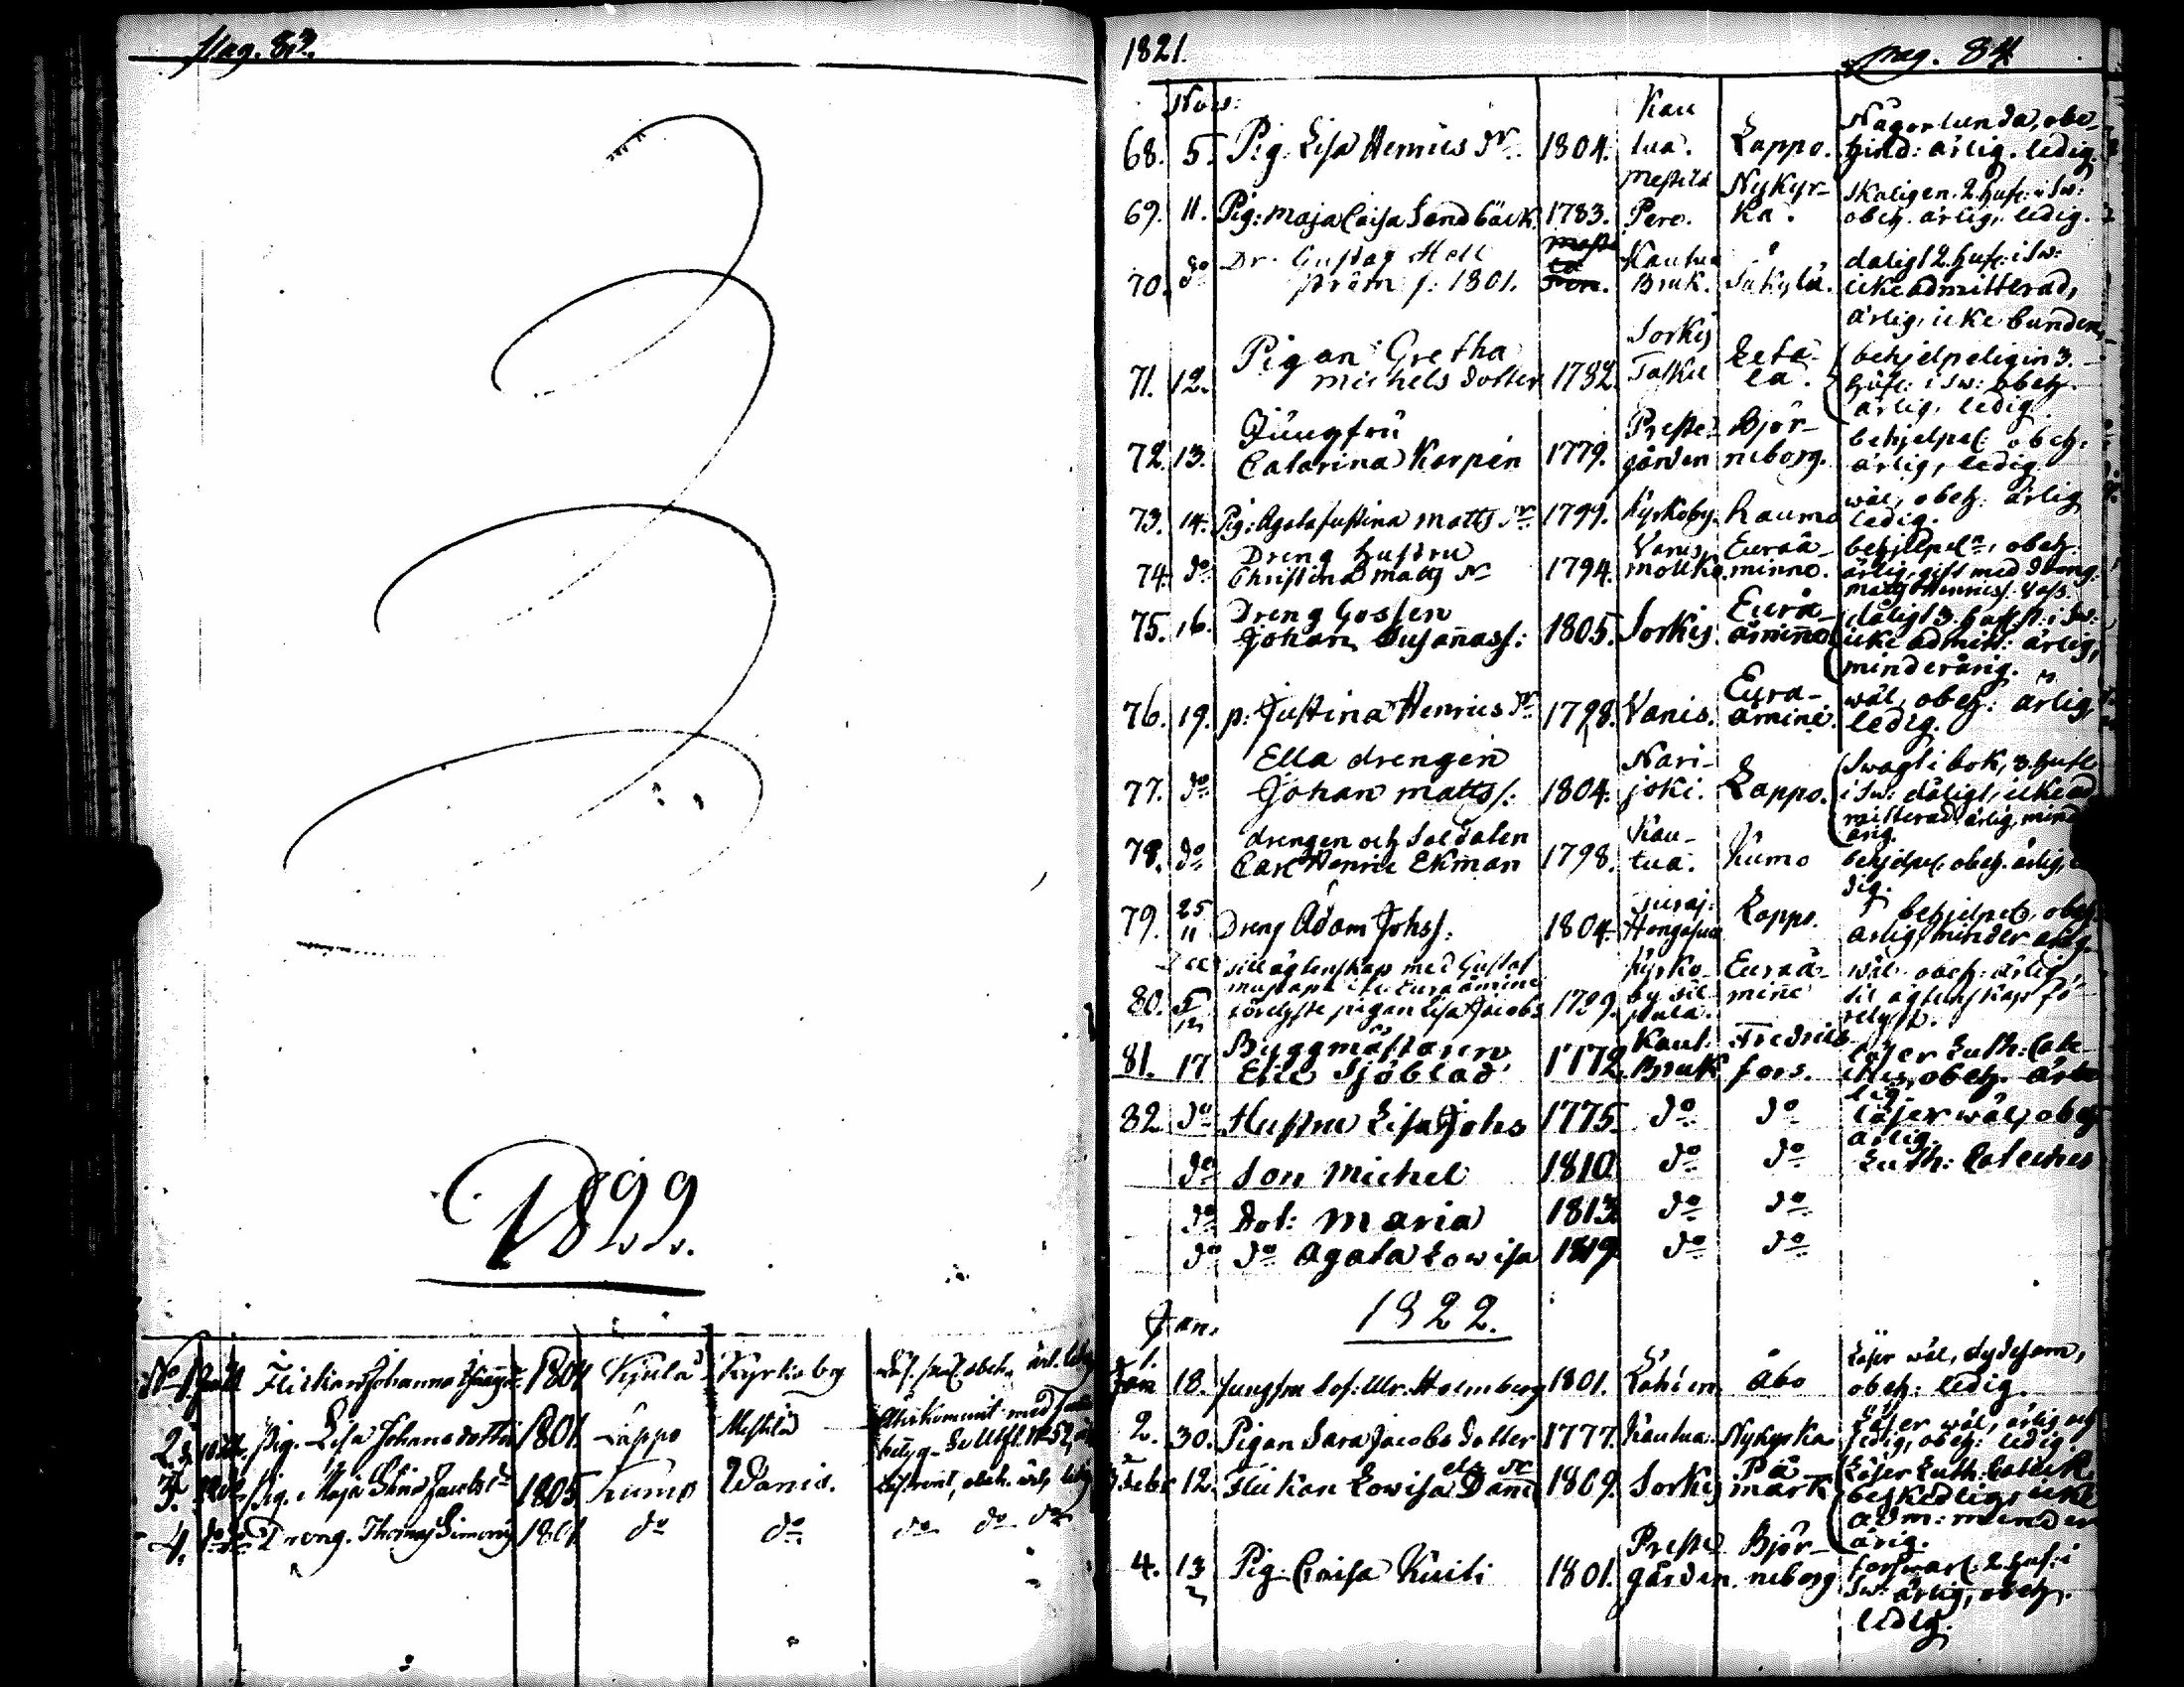 pag. 83.
1822.
No 1. Flickan Johanna 1804 Kjulå Kyrkoby
2. Pig. Lisa Johansdotter 1801. Lappo Mestilä
3. Pig. Maja Stina Jacobsdr 1805 Kumo Wanis.
4. do do Dreng. Thomas Simonss 1801 do do do do do
1821. pag. 84
Nov:
68. 5. Pig. Lisa Henrics dr. 1804. Kau
tua. Lappo. Någorlunda, obe-
hind: ärlig. ledig.
69. 11. Pig: Maja Caisa Sandbäck. 1783. Mestilä
Pero. Nykyr-
ka. skäligen. 2. huf: i Sw:
obeh. ärlig, ledig.
70. do Dr. Gustaf Hell
ström f. 1801. Kautua
Bruk. Säkylä. dåligt 2. huf: i Sw:
icke admitterad,
ärlig, icke bunden,
71. 12. Pigan Gretha
Michels dotter 1782. Sorkis
Eura- behjelpeligin 3.
huf: i Sw: obeh.
ärlig, ledig.
72. 13. Jungfru
Catarina Karpen 1779. Preste-
gården Björ-
neborg. behjelpel: obeh:
ärlig, ledig.
73. 14. Pig: Agata Justina Matts dr. 1799. Kyrkoby. Raumo wäl, obeh: ärlig
ledig.
74. do Dreng hustru
Christina Matts dr 1794. Vanis Euraå-
minne. behjelpeln, obeh.
ärlig, gift med dreng.
Matts Henricss.
75. 16. Dreng Gossen
Johan Susannass: 1805. Sorkis. Eura
åminne dåligt 3. huf: i Sw:
icke admitt: ärlig,
minderårig.
76. 19. p: Justina Henrics dr 1798. Vanis. Eura-
åmine. wäl, obeh: ärlig,
ledig.
77. do Ella drengen
Johan Matts s: 1804. Nari-
joki. Lappo. Swagt i bok, 3. huf
i Sw: dåligt, icke ad
mitterad ärlig, mind
årig.
78. do drengen och Soldaten
Carl Henric Ekman 1798. Kau-
tua. Kumo behjelpel: obeh. ärlig, le
dig.
79. 25
11 Dreng Adam Johss: 1804. Lappo. behjelpel, obeh
ärlig, minder årig.
80. 5
12 till ägtenskap med Gustaf
i fr. Euraåminne
förelyste pigan Lisa Jacobs 1799. Kyrko-
by Euraå-
mine wäl. obeh: ärlig,
til ägtenskap fö-
relyst.
81. 17 Byggmästaren
Eric Sjöblad 1772 Kaut.
Bruk Fredrics
fors. läser Luth: Cate
obeh. ärlig
82. do Hustru Lisa Johs 1775. do do läser wäl, obeh
ärlig.
do Son Michel 1810. do do Luth: Cateches
do Dot: Maria 1813 do do
do do Agata Lowisa 1819 do do
Jan. 1822.
1. Jan 18. Jungfru Sof: Ulr. Holmberg 1801. Åbo Läser wäl, dydesam,
obeh: ledig.
2. 30. Pigan Sara Jacobs dotter 1777. Kautua. Nykyrka Läser wäl, ärlig och
ledig, obeh: ledig.
3 Febr 12. Flickan Lowisa Daniels dr 1809. Sorkis Pä-
mark Läser Luth: Catech.
beskedlig, icke
adm: minder
årig.
4. 13
2 Pig. Caisa Kuiti 1801. Preste-
gården. Björ-
neborg forswarl: 2. huf: i
Sw: ärlig, obeh.
ledig.